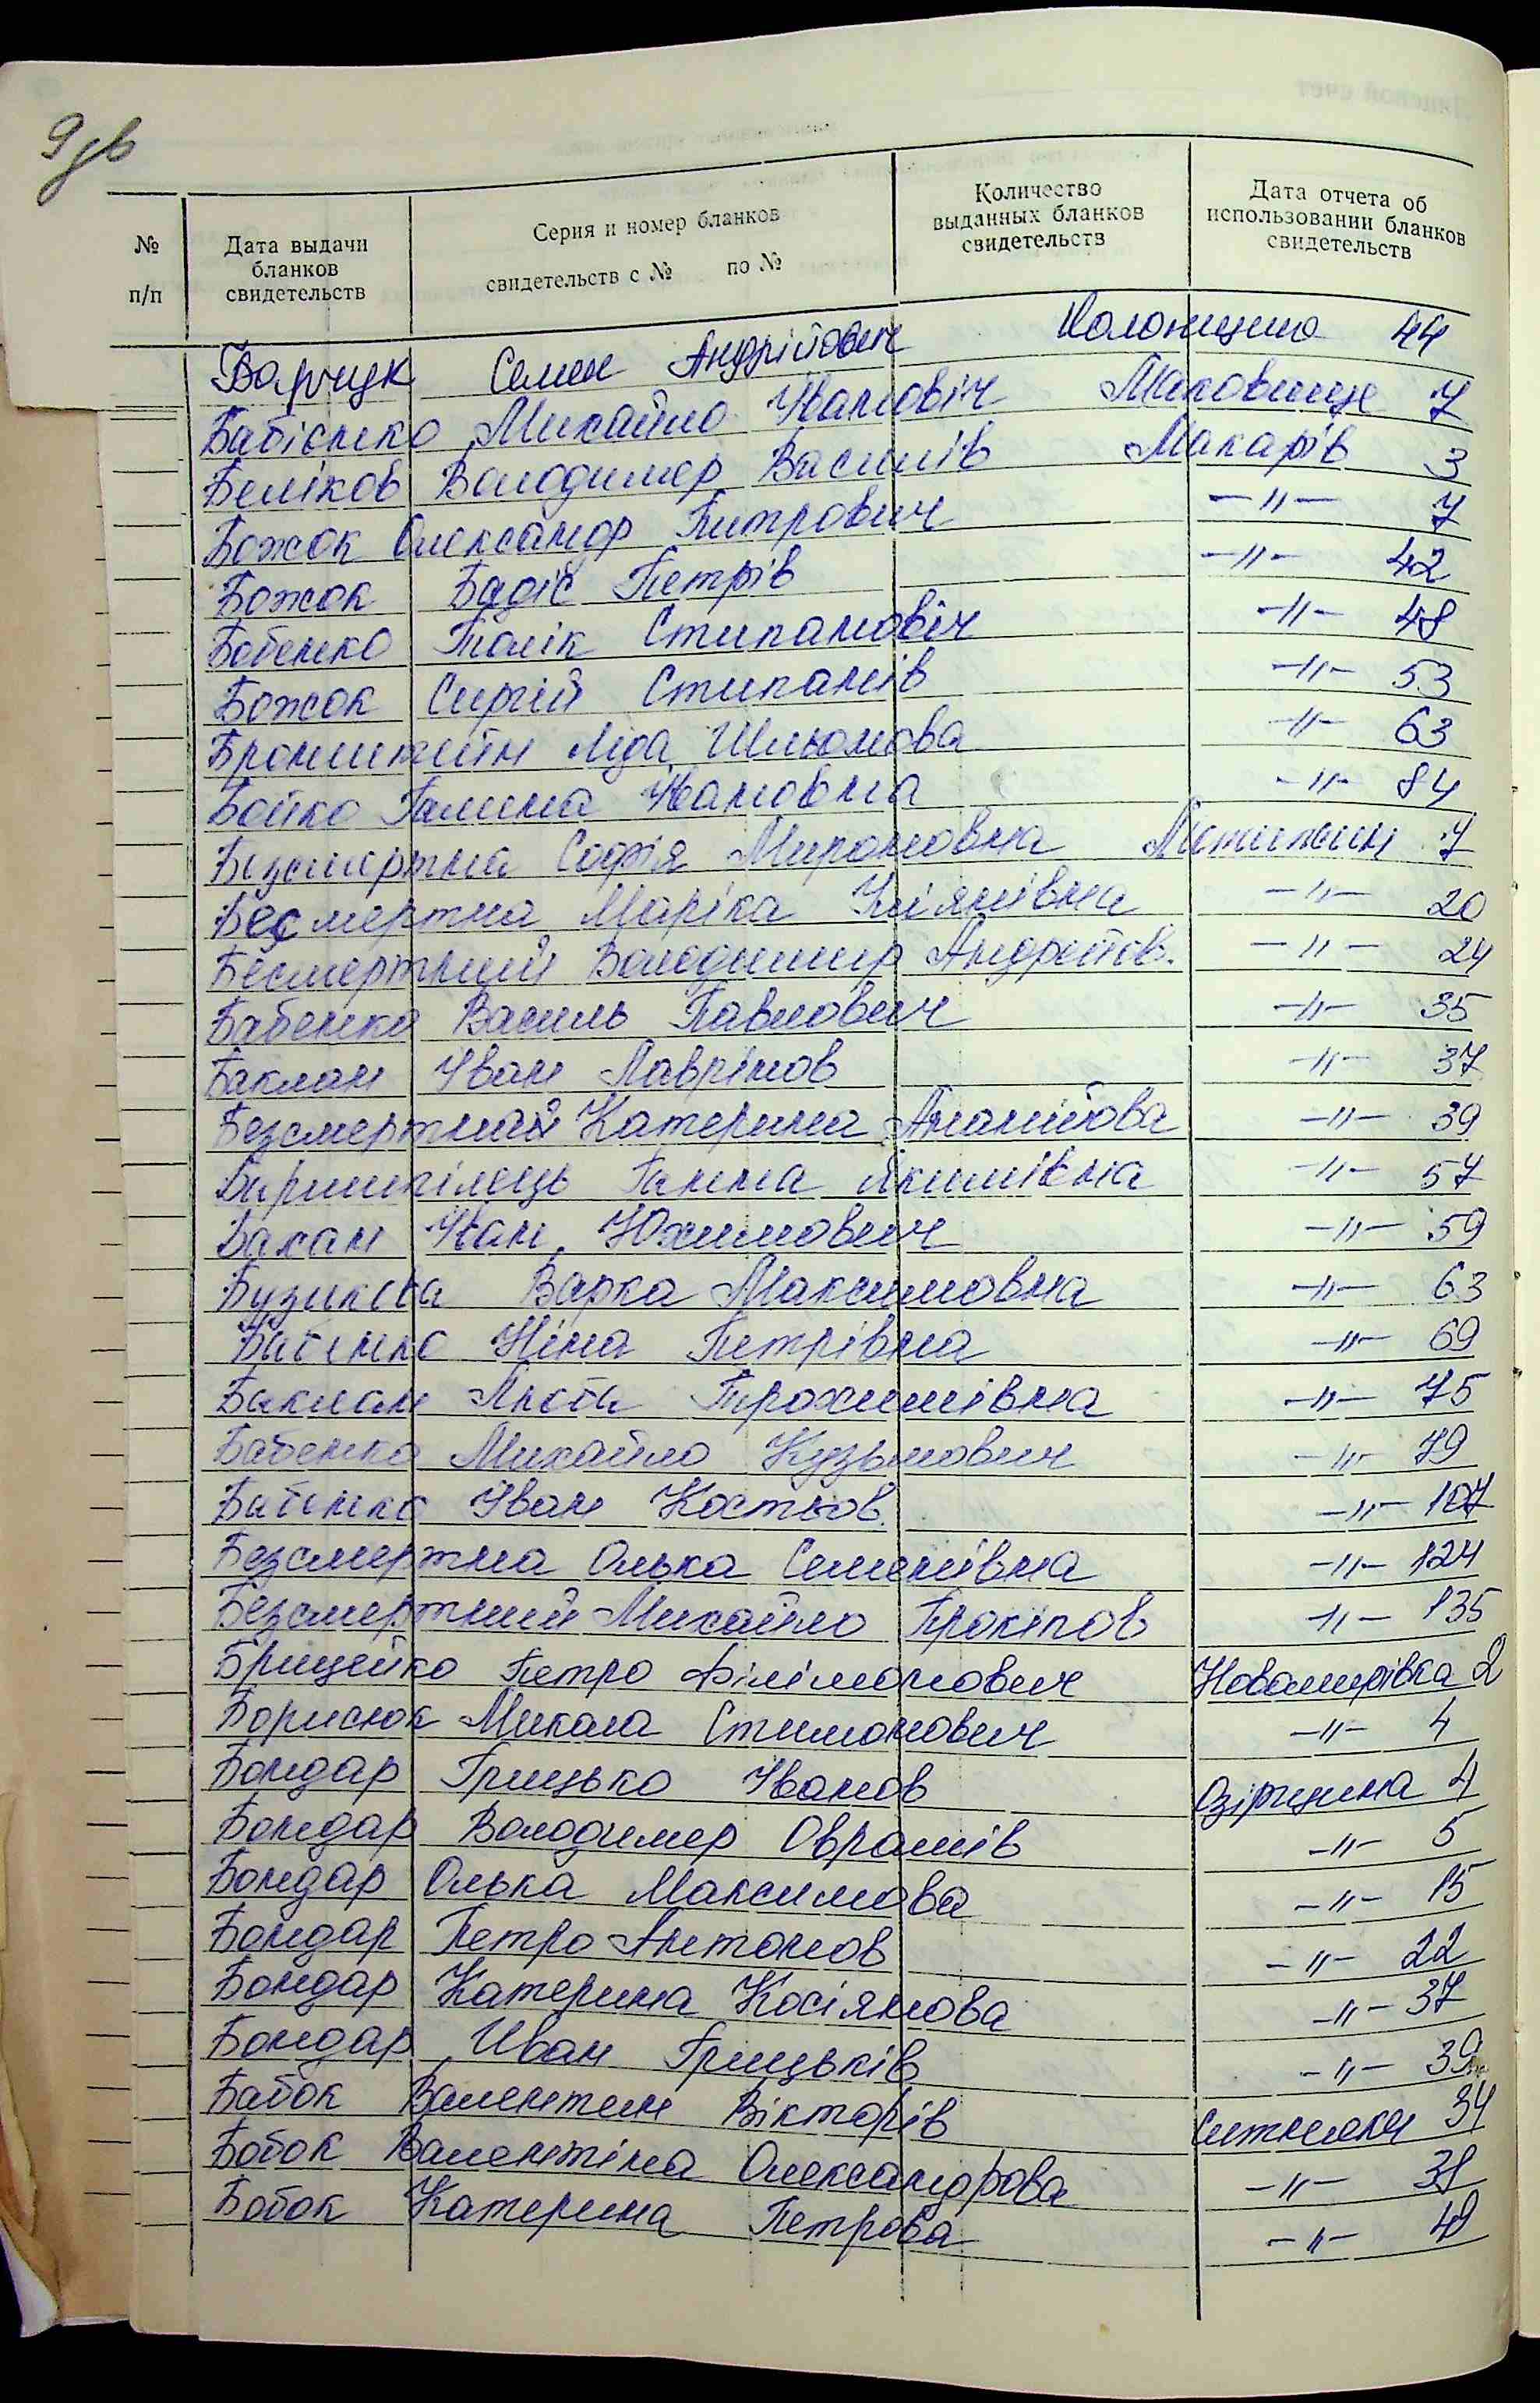 9зв
№ п/п
Дата выдачи бланков свидетельств
Серия и номер бланков свидетельств с № по №
Количество выданных бланков свидетельств
Дата отчета об использовании бланков свидетельств
Барчук Семен Андрійович Колонщино 44
Бабієнко Михайло Іванович Маковище 7
Беліков Володимер Василів Макарів 3
Божок Олександр Питрович -"- 7
Божок Бадіс Петрів -"- 42
Бобенко Толік Стипановіч -"- 48
Божок Сиргій Стипанів -"- 53
Бронштейн Ліда Шльомова -"- 63
Бойко Галина Івановна -"- 84
Безсмертна Софія Мироновна 7
Бесмертна Маріка Килянівна -"- 20
Бесмертний Володимир Андрейов. -"- 24
Бабенко Василь Павлович -"- 35
Баклан Іван Лаврінов -"- 37
Безсмертная Катерина Ананийова -"- 39
Ганна Якимівна -"- 57
Бакан Іван Юхимович -"- 59
Варка Максимовна -"- 63
Бабенко Ніна Петрівна -"- 69
Баклан Люба Трохимівна -"- 75
Бабенко Михайло Кузьмович -"- 79
Бабенко Іван Костьов. -"- 107
Безсмертна Олька Семенівна -"- 124
Безсмертний Михайло Прокіпов -"- 135
Брицейко Петро Філімонович Новомирівка 2
Борисюк Микола Стимонович -"- 4
Бондар Грицько Іванов Озірщина 4
Бондар Володимер Оврамів -"- 5
Бондар Олька Максимова -"- 15
Бондар Петро Антонов -"- 22
Бондар Катерина Косіянова -"- 37
Бондар Иван Грицьків -"- 39
Бабок Валентин Вікторів Ситняки 34
Бобок Валентіна Олександрова -"- 38
Бобок Катерина Петрова -"- 49